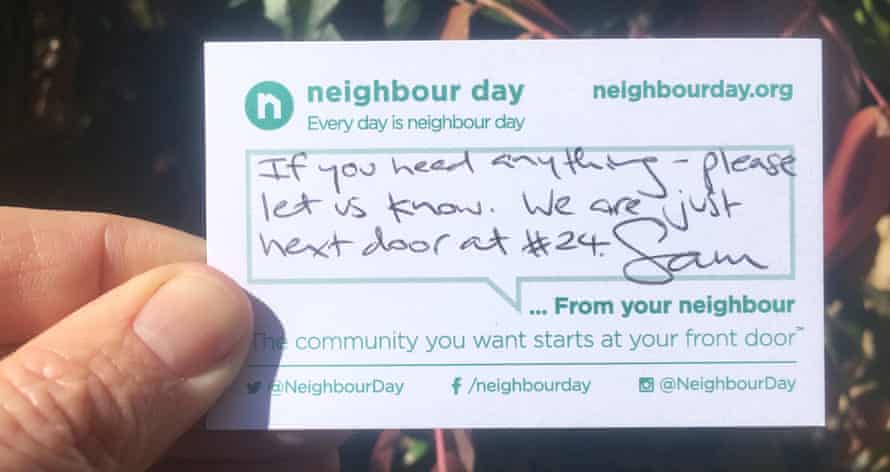 n
neighbour day
neighbourday.org
Every day is neighbour day
If you need anything - please
let us know. We are just
next door at #24. Sam
... From your neighbour
The community you want starts at your front door™
@NeighbourDay f /neighbourday @NeighbourDay